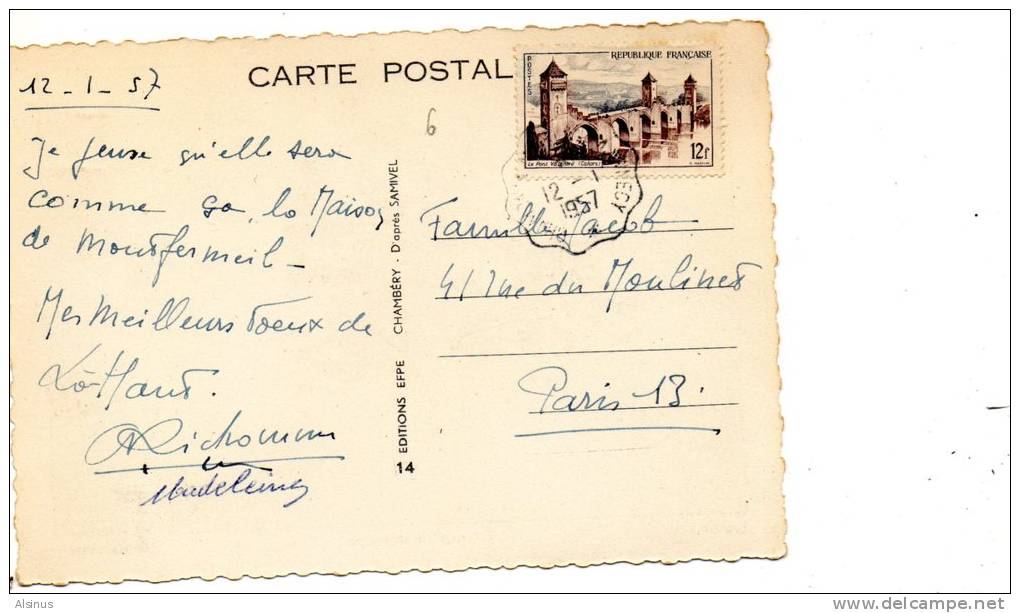 12 - 1 - 57
CARTE POSTAL
6
Je pense qu'elle sera
comme ça, la Maison
de Montfermeil -
Mes Meilleurs Voeux de
Là-Haut.
Richomme
Madeleine
EDITIONS EFPE CHAMBÉRY - D'après SAMIVEL
14
REPUBLIQUE FRANÇAISE
POSTES
12f
Le Pont Valentré (Cahors)
12 - 1
1957
Famille Jacob
41 rue du Moulinet
Paris 13.
Alsinus
www.delcampe.net